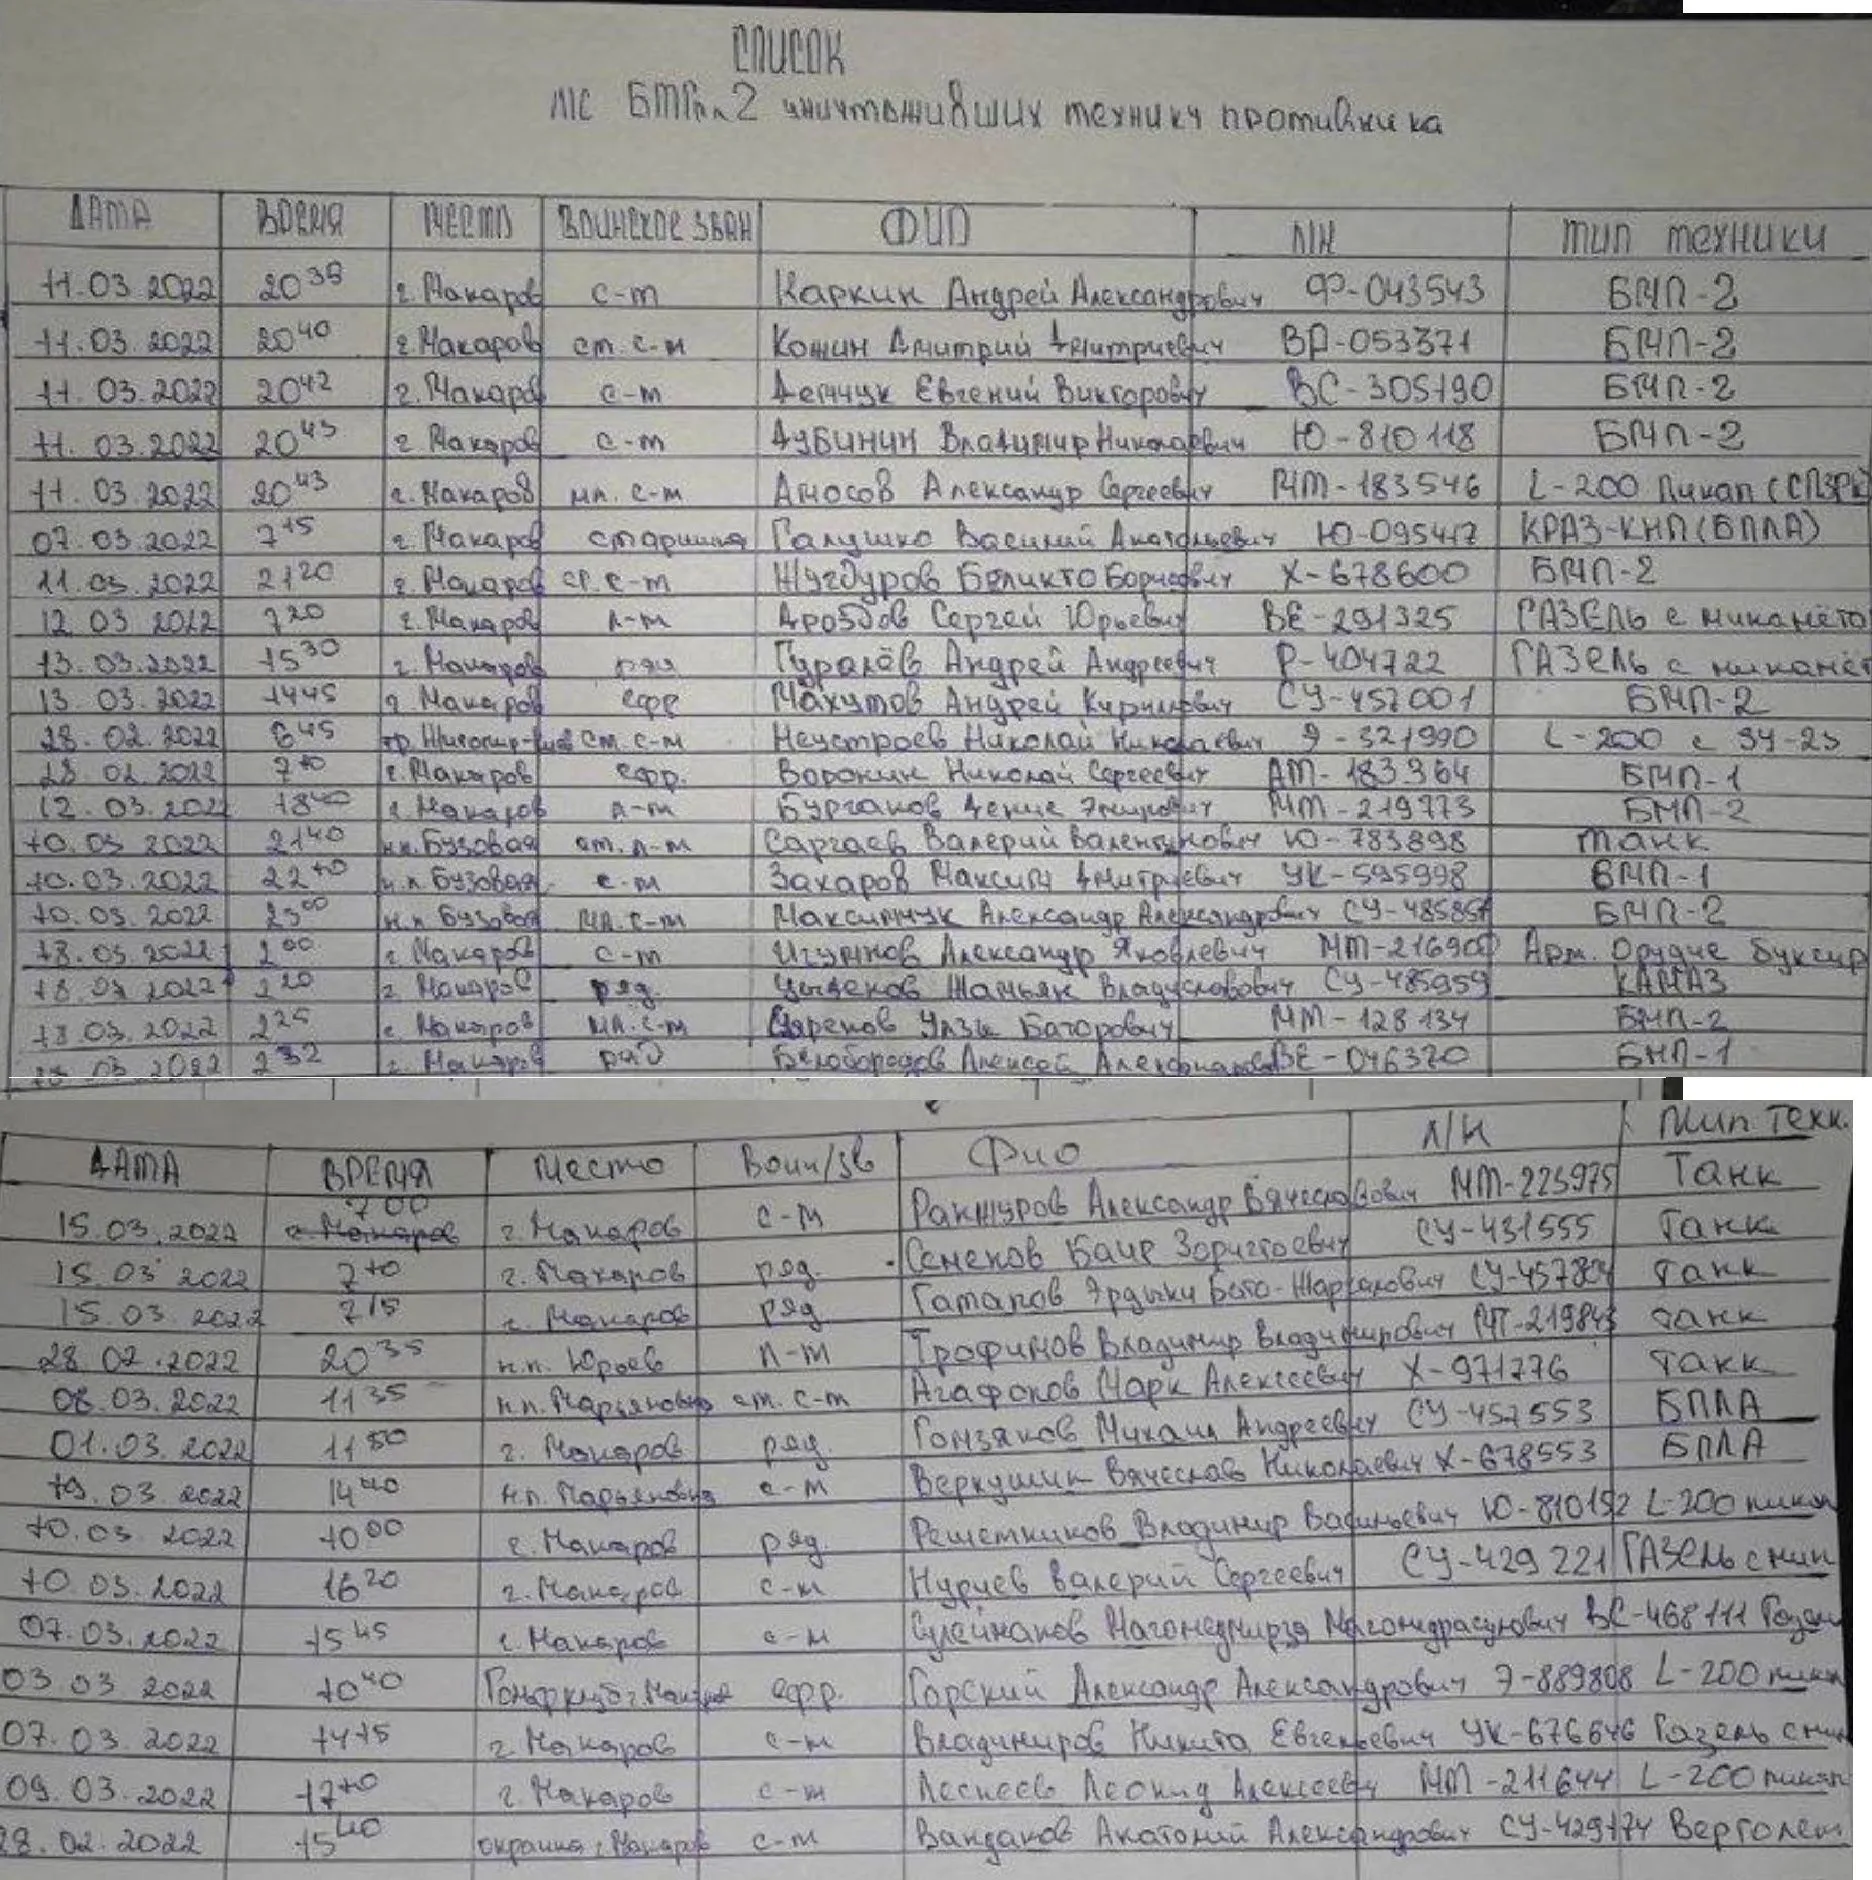 СПИСОК
Л/С БТГр 2 уничтоживших технику противника
ДАТА ВРЕМЯ МЕСТО ВОИНСКОЕ ЗВАН ФИО Л/Н ТИП ТЕХНИКИ
11.03.2022 20 38 г. Макаров с-т Каркин Андрей Александрович Ф-043543 БМП-2
11.03.2022 20 40 г. Макаров ст. с-т Кожин Дмитрий Дмитриевич ВР-053371 БМП-2
11.03.2022 20 42 г. Макаров с-т Демчук Евгений Викторович ВС-305190 БМП-2
11.03.2022 20 45 г. Макаров с-т Дубинин Владимир Николаевич Ю-810118 БМП-2
11.03.2022 20 43 г. Макаров мл. с-т Амосов Александр Сергеевич МТ-183546 L-200 Пикап (СПЗРК
07.03.2022 7 15 г. Макаров старшина Галушко Василий Анатольевич Ю-095417 КРАЗ-КНП (БПЛА)
11.03.2022 21 20 г. Макаров с-т Жугдуров Беликто Борисович Х-678600 БМП-2
12.03 2022 7 20 г. Макаров л-т Дроздов Сергей Юрьевич ВЕ-291325 ГАЗЕЛЬ с
13.03.2022 15 30 г. Макаров ряд Гуралёв Андрей Андреевич Р-404722 ГАЗЕЛЬ с
13.03 2022 14 45 г. Макаров ефр Махутов Андрей Кириллович СУ-457001 БМП-2
28.02.2022 6 45 тр. ст. с-т Неустроев Николай Николаевич Э-321990 L-200 с ЗУ-23
28.02 2022 7 10 г. Макаров ефр. Воронин Николай Сергеевич АМ-183364 БМП-1
12.03.2022 18 40 г. Макаров л-т Бурганов Денис МТ-219773 БМП-2
10.03 2022 21 40 н.п. Бузовая ст. л-т Саргаев Валерий Валентинович Ю-783898 Танк
10.03.2022 22 10 н.п. Бузовая с-т Захаров Максим Дмитриевич УК-595998 БМП-1
10.03.2022 23 00 н.п Бузовая мл. с-т Максимчук Александр Александрович БМП-2
18.03.2022 2 00 г. Макаров с-т Игумнов Александр Яковлевич Арт. Орудие буксир
18.03 2022 2 20 г. Макаров ряд. Цыденов Жамьян Владиславович СУ-485959 КАМАЗ
18.03.2022 2 25 г. Макаров мл. с-т Цыренов Баторович МТ-128134 БМП-2
18 03 2022 2 32 г. Макаров ряд Белобородов Алексей Александрович ВЕ-046320 БМП-1
ДАТА ВРЕМЯ Место Воин/зв Фио Л/Н Тип Техн.
15.03.2022 7 00 г. Макаров г. Макаров с-т Ракшуров Александр Вячеславович МТ-225975 Танк
15.03 2022 7 10 г. Макаров ряд. Семенов Баир Зоригтоевич СУ-431555 Танк
15.03.2022 7 15 г. Макаров ряд Гатапов Эрдыни Бато-Жаргалович СУ-457804 Танк
28 02.2022 20 35 н.п. Юрьев л-т Трофимов Владимир Владимирович Танк
08.03.2022 11 35 н.п. Марьяновка ст. с-т Агафонов Марк Алексеевич Х-971776 Танк
01.03.2022 11 50 г. Макаров ряд. Гомзяков Михаил Андреевич СУ-457553 БПЛА
19.03.2022 14 40 н.п. Марьяновка с-т Веркушин Вячеслав Николаевич Х-678553 БПЛА
10.03.2022 10 00 г. Макаров ряд. Решетников Владимир Васильевич Ю-810192 L-200 пикап
10 03.2022 16 20 г. Макаров с-т Нуриев Валерий Сергеевич СУ-429221 ГАЗЕЛЬ с мин
07.03.2022 15 45 г. Макаров с-т Сулейманов Магомедмирза Магомедрасулович ВС-468111 Газель
03 03 2022 10 40 Гольфклуб г. Макаров ефр. Горский Александр Александрович Э-889808 L-200 пикап
07.03.2022 14 15 г. Макаров с-т Владимиров Никита Евгеньевич УК-676646 Газель с мин
09.03.2022 17 10 г. Макаров с-т Леонид Алексеевич МТ-211644 L-200 пикап
28.02.2022 15 40 окраина г. Макаров с-т Ванданов Анатолий Александрович СУ-429174 Вертолет